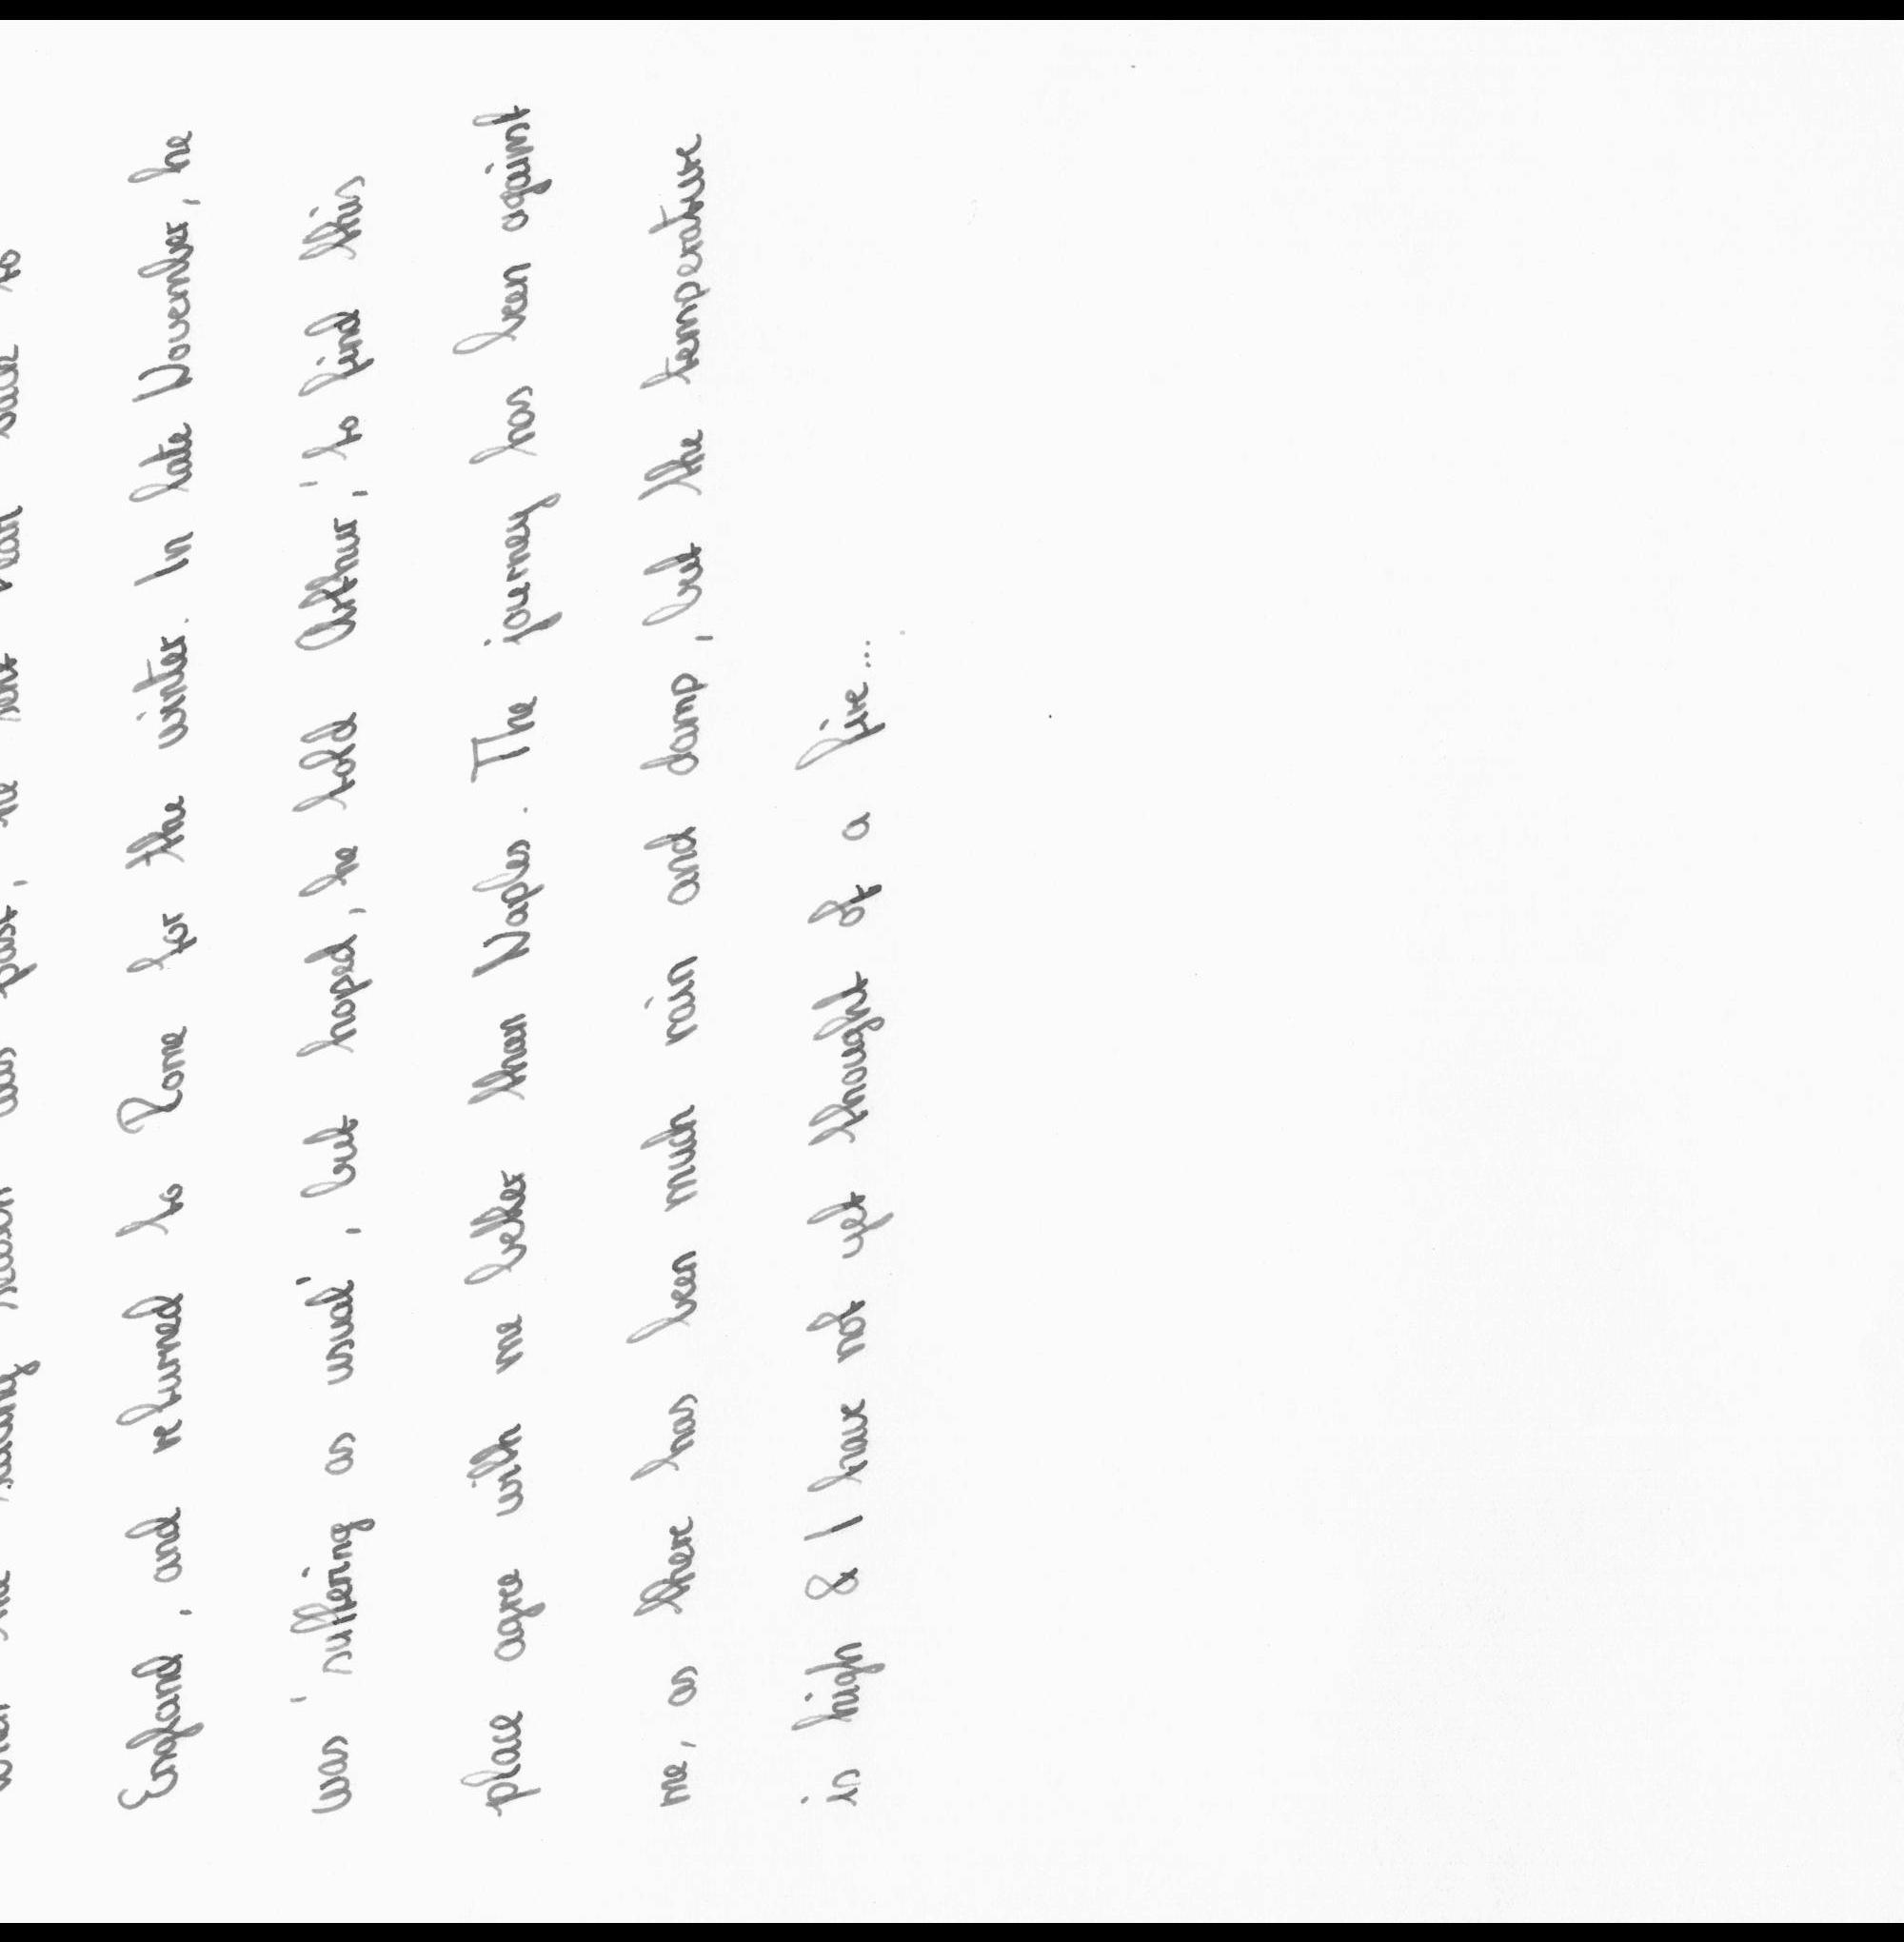 When the sailing season was past, he sent Jean back to
England, and returned to Rome for the winter. In late November, he
was 'suffering as usual', but hoped, he told Arthur, 'to find this
place agree with me better than Naples. The journey has been againt
me, as there has been much rain and damp, but the temperature
is high & I have not yet thought of a fire...